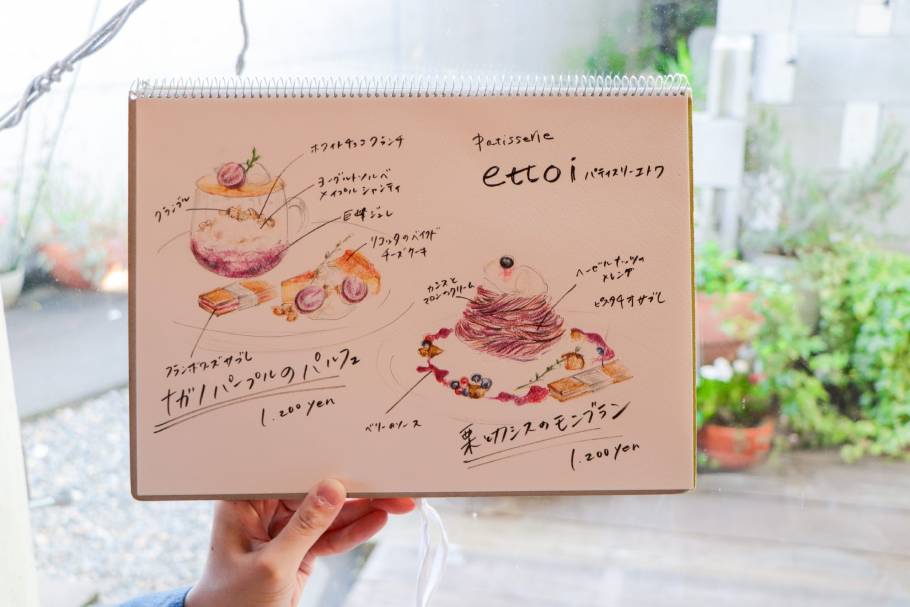 Patisserie
ettoi パティスリーエトワ
ホワイトチョコクランチ
ヨーグルトソルベ
メイプルシャンティ
グランブル
巨峰ジュレ
リコッタのベイクド
チーズケーキ
フランボワーズサブレ
ナガノパープルのパルフェ
1.200 yen
カシスと
マロンのクリーム
ヘーゼルナッツの
メレンゲ
ピスタチオサブレ
ベリーのソース
栗とカシスのモンブラン
1.200 yen